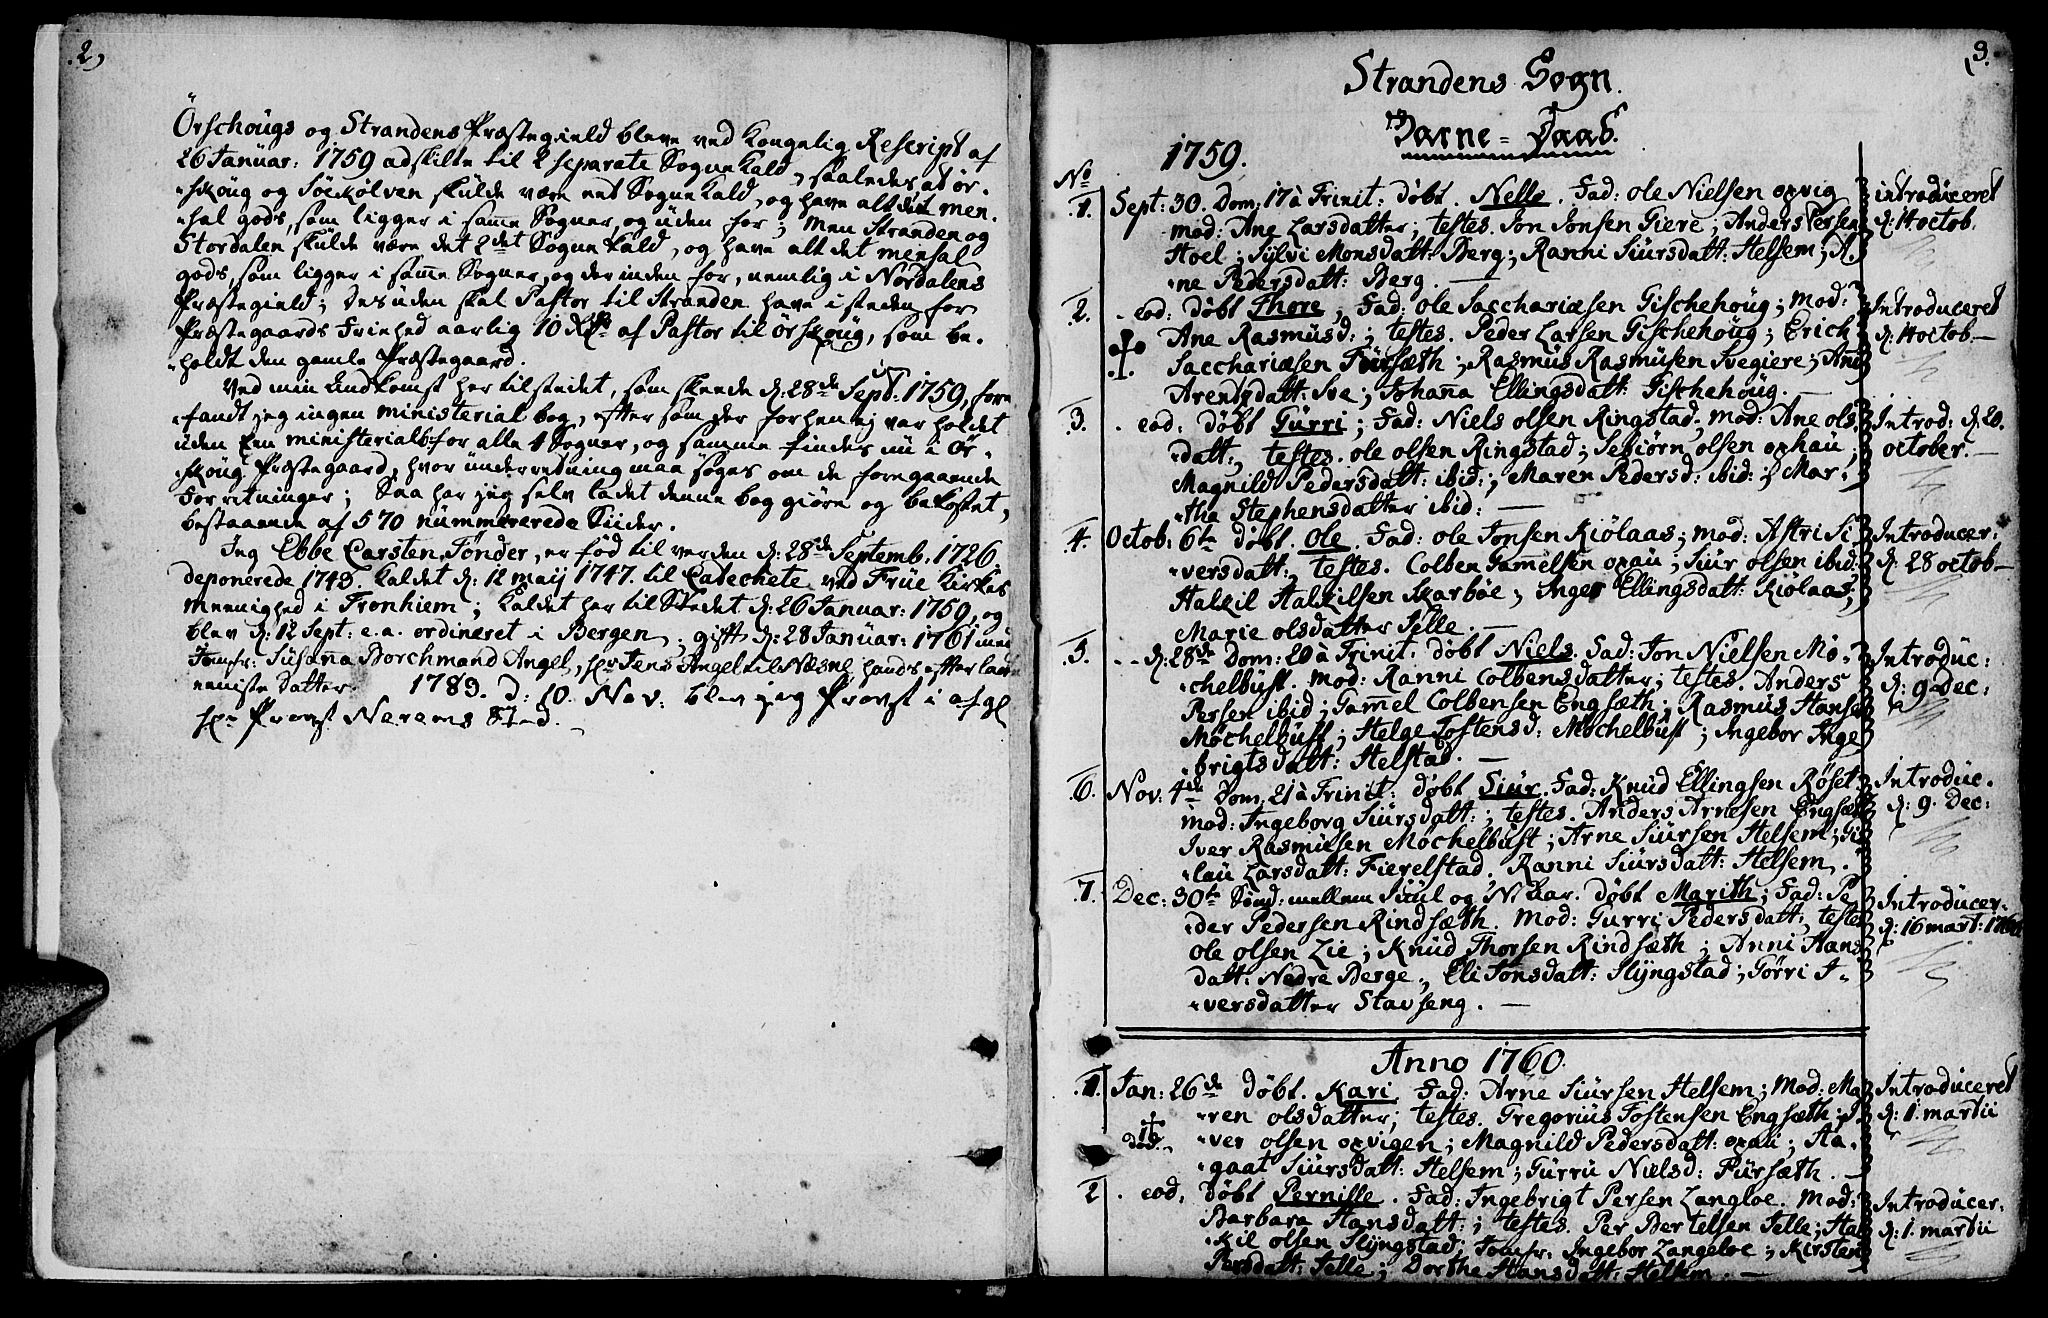 2,
Örschougs og Strandens Præstegield bleve ved Kongelig Rescript af
26 Januar: 1759 adskilte til 2 separate Sogne Kald, saaledes, at ör-
skoug og Söekölven skulde være eet Sogne Kald, og have alt det men-
sal gods, som ligger i samme Sogner, og uden for; Men Stranden og
Stordalen skulde være det 2det Sogne Kald, og have alt det mensal
gods, som ligger i samme Sogner, og der inden for, nemlig i Nordalens
Præstegield; Desuden skal Pastor til Stranden have i steden for
Præstegaards Friehed aarlig 10 Rdr af Pastor til örskoug, som be-
holdt den gamle Præstegaard.
Ved min Ankomst her til stedet, som skeede d: 28de Sept. 1759, fore-
fandt jeg ingen ministerial bog, efter som der forhen ej var holdt
uden een ministerialb: for alle 4 Sogner, og samme findes nu i ör-
skoug Præstegaard, hvor underretning maa söges om de foregaaende
Forretninger; Saa har jeg selv ladet denne bog giöre og bekostet,
bestaaende af 570 nummererede Siider.
Jeg Ebbe Carsten Tönder, er föd til verden d: 28de Septemb. 1726
deponerede 1743. Kaldet d: 12 maij 1747. til Catechete ved Frue Kirkes
Meenighed i Tronhiem; Kaldet her til Stedet d: 26 Januar: 1759, og
blev d: 12 Sept: e.a. ordineret i Bergen; gift d: 28 Januar: 1761 med
Jomfr: Susanna Borchmand Angel, Hr Jens Angel til Næsne hands efter ladte
eeniste Datter. 1783. d: 10. Nov: blev jeg Provst i afgl
Hr Provst Nerems Sted.
3.
Strandens Sogn.
Barne-Daab.
1759.
No
1. Sept: 30. Dom: 17 à Trinit: döbt. Nelle. Fad: ole Nielsen opvig introduceret
mod: Ane Larsdatter; testes. Jon Jonsen Giere; Anders Persen d: 14 octob.
Hoel; Sylvi Monsdatt: Berg; Ranni Siursdatt: Helsem; A-
ne Pedersdatt: Berg.
2. eod: döbt Thore, Fad: ole Sacchariæsen Gischehoug; mod: Introduceret
Ane Rasmusd:; testes. Peder Larsen Gischehoug; Erich d: 14 octob
Sacchariæsen Fursæth; Rasmus Rasmusen Svegiere; Ane
Arentsdatt: Sve; Johanna Ellingsdatt: Gischehoug.
3. eod: döbt Gurri; Fad: Niels olsen Ringstad; mod: Ane ols- Introd: d: 20.
datt:, testes. ole olsen Ringstad; Sebiörn olsen ophau; october.
Magnild Pedersdatt: ibid:; Maren Pedersd: ibid:; Mar-
tha Stephensdatter ibid:
4. Octob: 6te döbt. Ole. Fad: ole Jonsen Kiölaas; mod: Astri Si- Introducer:
versdatt:, testes. Colben Gamelsen opau; Siur olsen ibid: d: 28 octob
Halkil Halkilsen Skarböe; Inger Ellingsdatt: Kiölaas;
Marie olsdatter Selle.
5. d: 28de Dom: 20 à Trinit: döbt Niels. Fad: Jon Nielsen Mö- Introduc:
chelbust. mod: Ranni Colbensdatter; testes. Anders d: 9 Dec:
Persen ibid; Gammel Colbensen Engsæth; Rasmus Hansen
Möchelbust; Helge Tostensd: Möchelbust; Ingebor Inge-
brigtsdatt: Helstad.
6. Nov: 4de Dom: 21 à Trinit: döbt Siur. Fad: Knud Ellingsen Röset Introduc.
mod: Ingeborg Siursdatt:, testes. Anders Arnesen Engsæth d: 9. Dec:
Iver Rasmusen Möchelbust; Arne Siursen Helsem; Gi-
lau Larsdatt: Fierelstad, Ranni Siursdatt: Helsem.
7. Dec: 30te Sönd: mellem Juul og Ny Aar. döbt Marith; Fad: Pe- Introducer.
der Pedersen Rindsæth. Mod: Gurri Pedersdatt, testes d: 16 mart: 1760
ole olsen Lie; Knud Thorsen Rindsæth; Anni Hans-
datt: Nedre Berge; Eli Jonsdatt: Slyngstad; Görri I-
versdatter Stavseng.
Anno 1760.
1. Jan: 26de döbt. Kari. Fad: Arne Siursen Helsem; Mod: Ma- Introduceret
ren olsdatter; testes. Gregorius Tostensen Engsæth; I- d: 1. martii
död. ver olsen opvigen; Magnild Pedersdatt: opau; Aa-
gaat Siursdatt: Helsem; Gurru Nielsd: Fursæth.
2. eod, döbt Pernille. Fad: Ingebrigt Persen Langloe. Mod: Introducer.
Barbara Hansdatt:; testes. Per Bertelsen Selle; Hal- d: 1. martii
kil olsen Slyngstad; Jomfr: Ingebor Langeloe; Kirsten
Persdatt: Selle; Dorthe Hansdatt: Helsem.